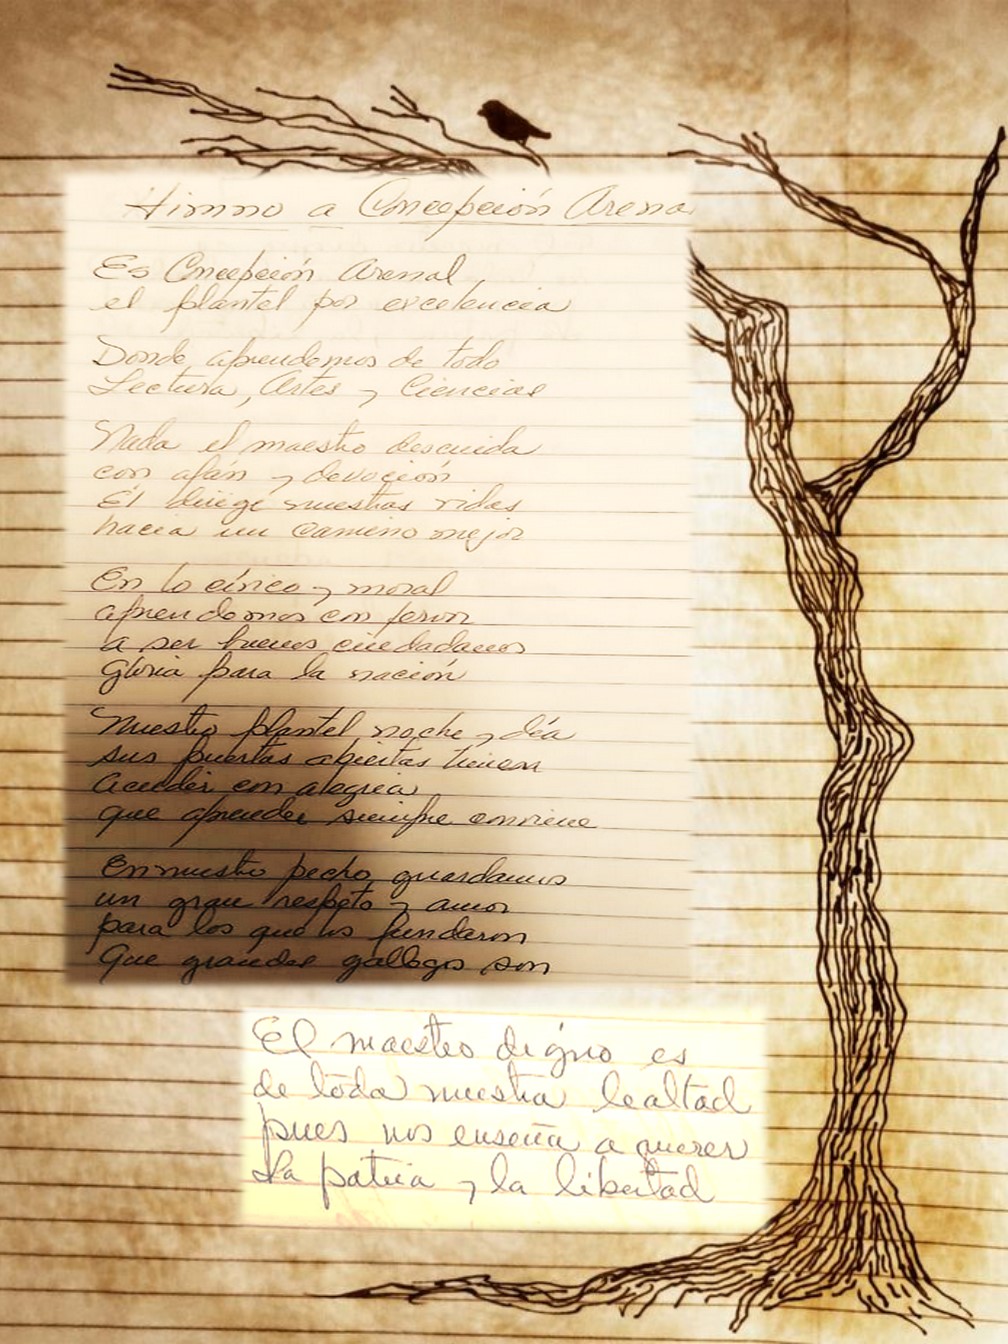 Himno a Concepción Arena
Es Concepción Arenal
el plantel por excelencia
Donde aprendemos de todo
Lectura, Artes y Ciencias
Nada el maestro descuida
con afán y devoción
Él dirige nuestras vidas
hacia un camino mejor
En lo cívico y moral
aprendemos con fervor
a ser buenos ciudadanos
gloria para la nación
Nuestro plantel noche y día
sus puertas abiertas tienen
acudir con alegría
que aprender siempre conviene
En nuestro pecho guardamos
un gran respeto y amor
para los que los fundaron
Que grandes gallegos son
El maestro digno es
de toda nuestra lealtad
pues nos enseña a querer
La patria y la libertad